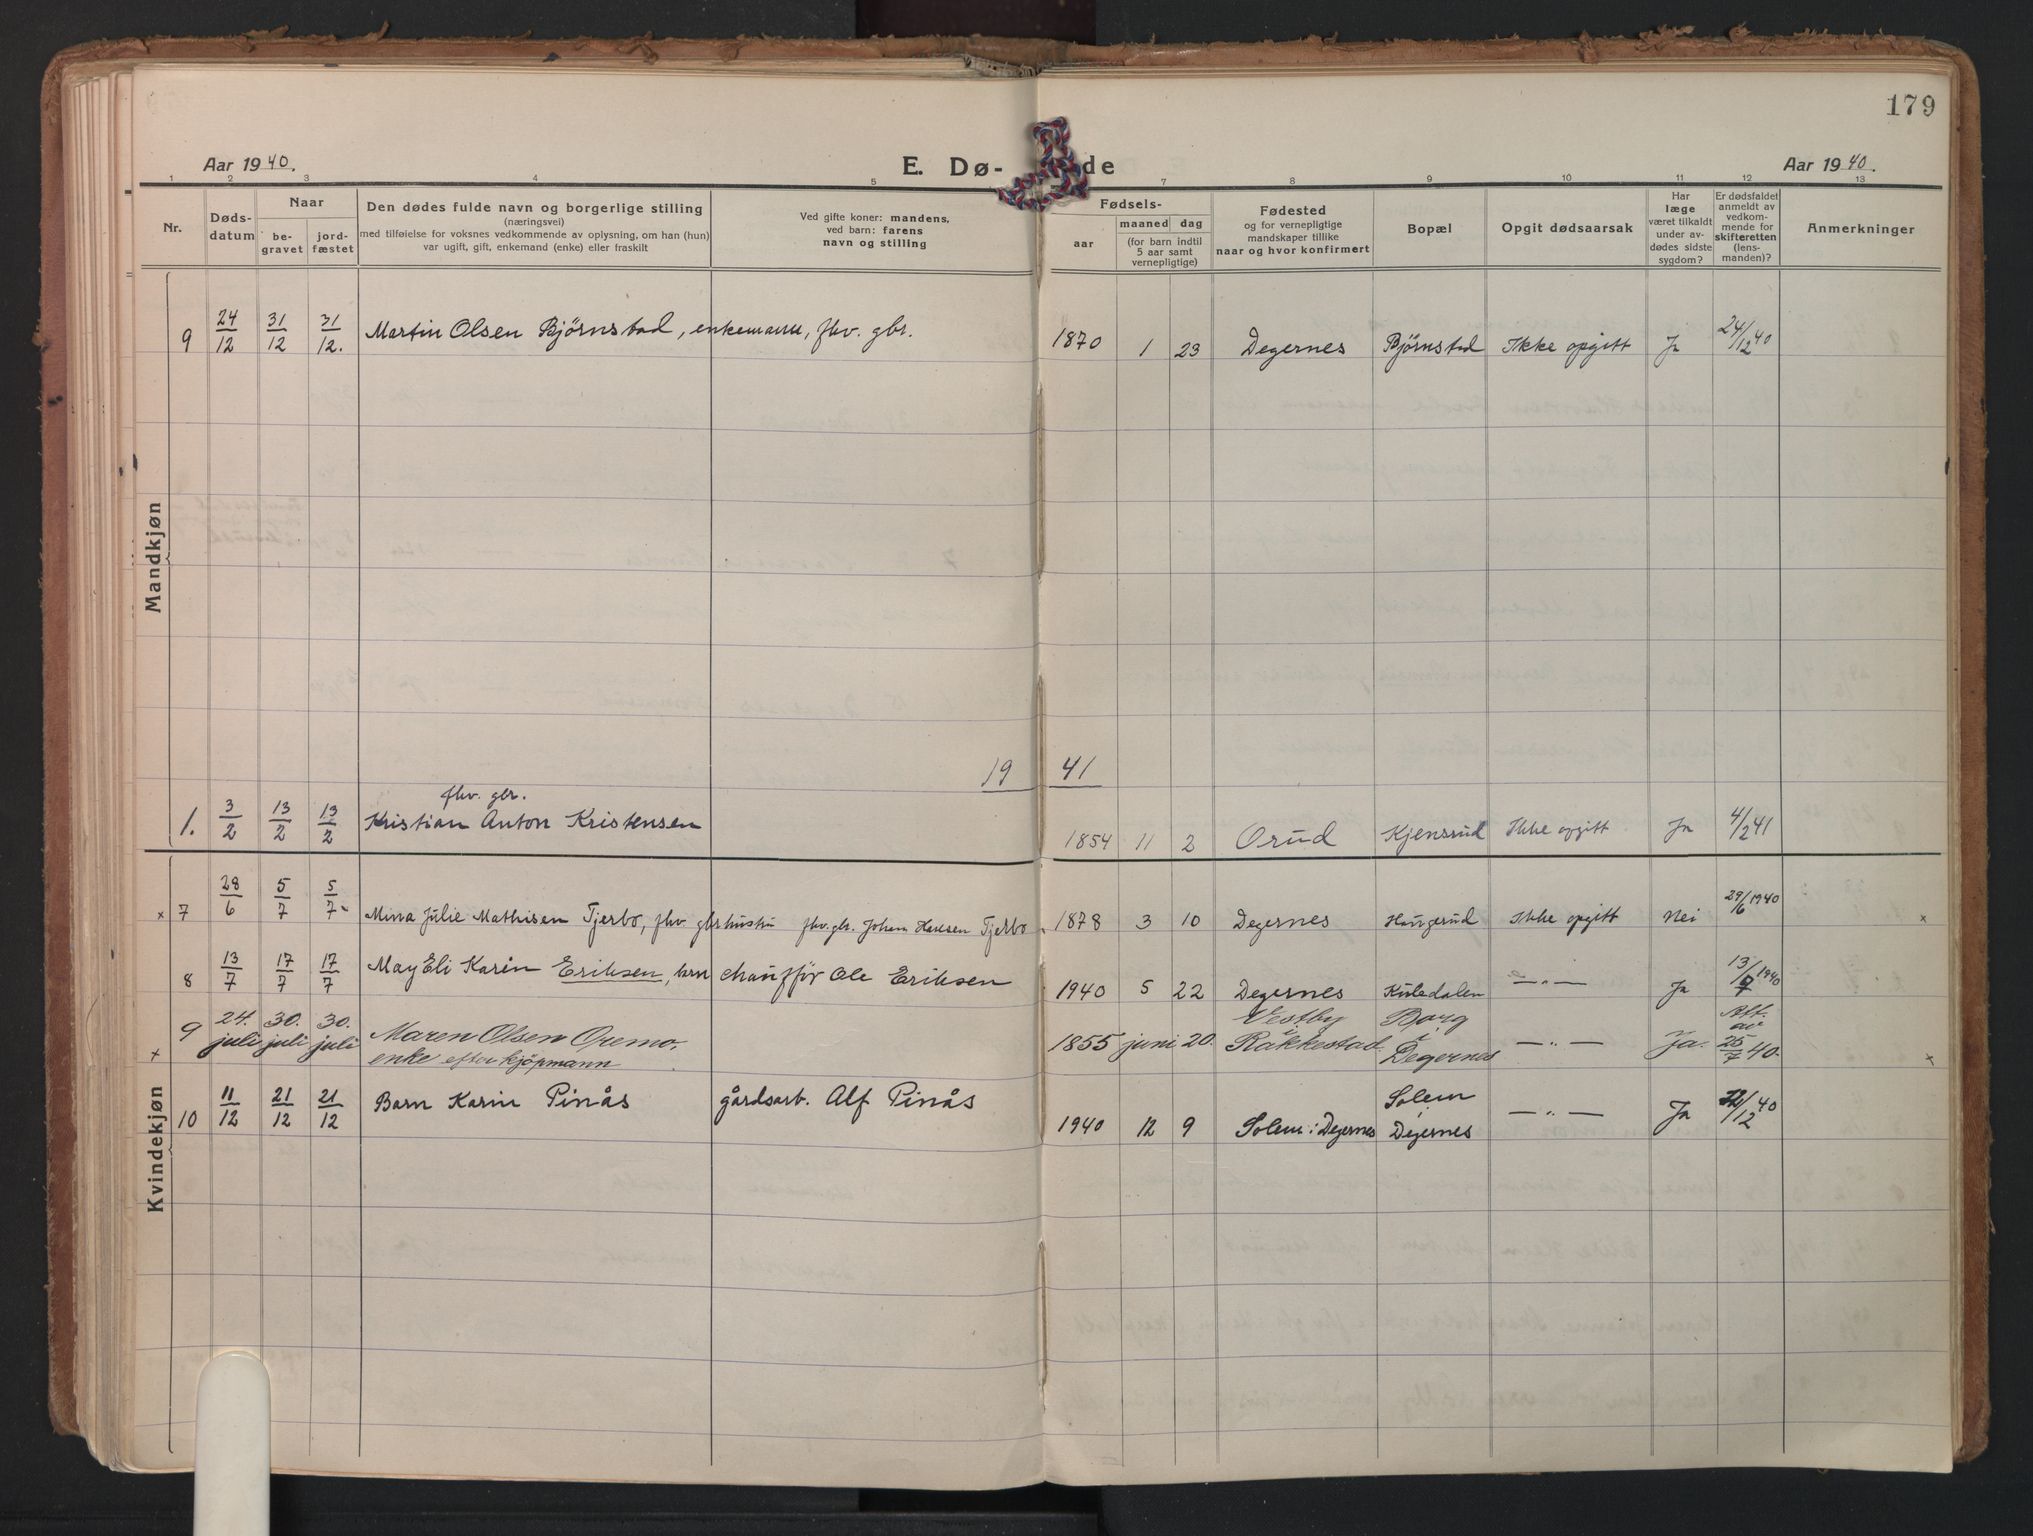 179
Aar 1940.
E. Dø-
de
Aar 1940.
1 2 3 4 5 7 8 9 10 11 12 13
Nr.
Døds-
datum
Naar
be-
gravet
jord-
fæstet
Den dødes fulde navn og borgerlige stilling
(næringsvei)
med tilføielse for voksnes vedkommende av oplysning, om han (hun)
var ugift, gift, enkemand (enke) eller fraskilt
Ved gifte koner: mandens,
ved barn: farens
navn og stilling
Fødsels-
aar
maaned dag
(for barn indtil
5 aar samt
vernepligtige)
Fødested
og for vernepligtige
mandskaper tillike
naar og hvor konfirmert
Bopæl
Opgit dødsaarsak
Har
læge
været tilkaldt
under av-
dødes sidste
sygdom?
Er dødsfaldet
anmeldt av
vedkom-
mende for
skifteretten
(lens-
manden)?
Anmerkninger
Mandkjøn
9 24/12 31/12 31/12. Martin Olsen Bjørnstad, enkemann, fhv. gbr. 1870 1 23 Degernes Bjørnstad Ikke opgitt Ja 24/12 40
19 41
fhv. gbr.
1. 3/2 13/2 13/2 Kristian Anton Kristensen 1854 11 2 Orud Kjensrud Ikke opgitt Ja 4/2 41
Kvindekjøn
x 7 28/6 5/7 5/7 Mina Julie Mathisen Tjerbo, fhv. gbrhustru fhv. gbr. Johan Hansen Tjerbo 1878 3 10 Degernes Haugerud Ikke opgitt Nei 29/6 1940 x
8 13/7 17/7 17/7 May Eli Karin Eriksen, brn chauffør Ole Eriksen 1940 5 22 Degernes Kuledalen —"— Ja 13/7 1940
x 9 24. juli 30. juli 30. juli Maren Olsen Opemo. 1855 juni 20. Vestby Rakkestad Borg i Degernes —"— Ja. Att. av 25/7 40. x
enke efter kjøpmann
10 11/12 21/12 21/12 Barn Karin Pinås gårdsarb. Alf Pinås 1940 12 9 Solem i Degernes Solem Degernes —"— Ja 12/12 40